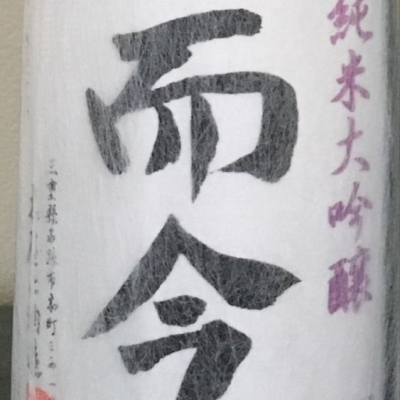 純米大吟醸
而今
三重県名張市本町二九一